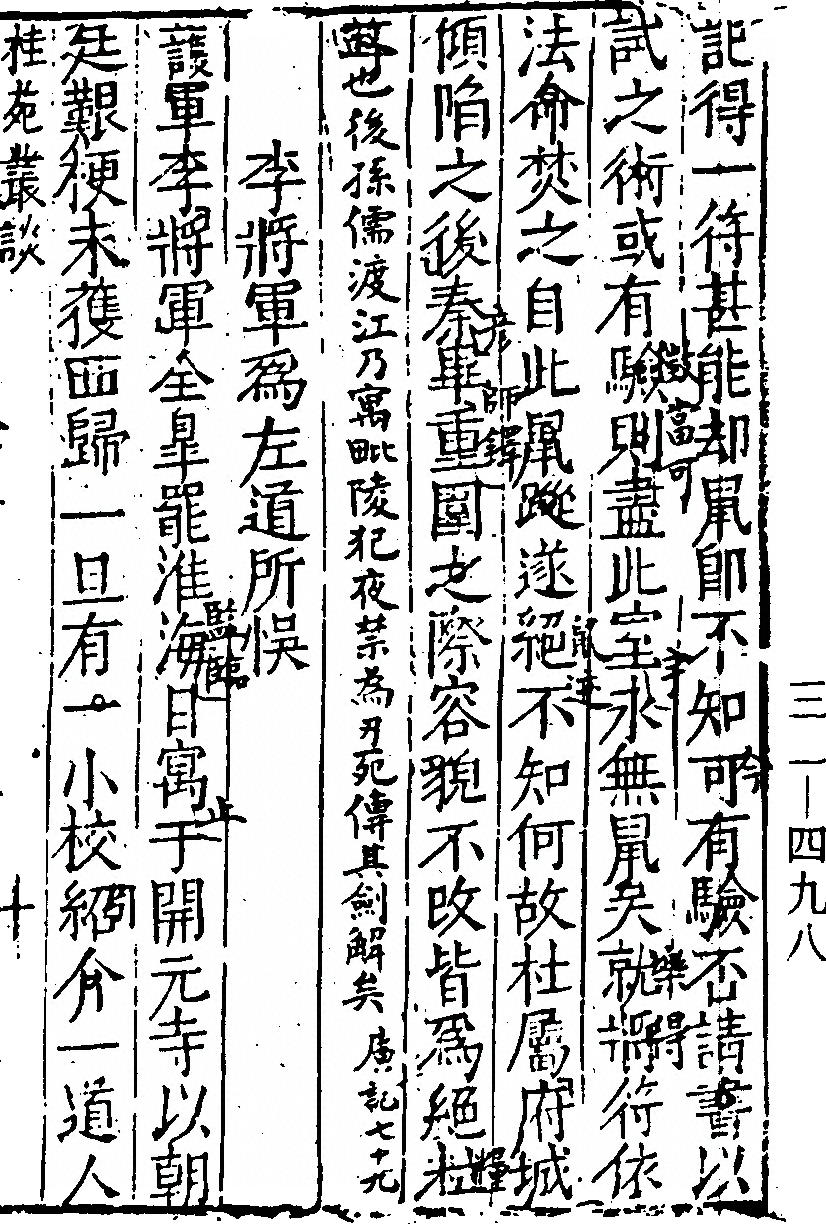 三一—四九八
記得一符甚能却鼠卽不知可有驗否請書以
試之術或有驗則盡此室永無鼠矣就將符依
法命焚之自此鼠蹤遂絕不知何故杜屬府城
傾陷之後秦畢重圍之際容貌不改皆爲絕粒
故也後孫儒渡江乃寓毗陵犯夜禁為刃死傳其劍解矣 廣記七十九
李將軍爲左道所悞
護軍李將軍全臯罷淮海日寓于開元寺以朝
廷艱梗未獲西歸一旦有一小校紹介一道人
桂苑叢談
十
今
徵
富可
主
藥得
鼠迹
彥師鐸
糧
監臨
止
引